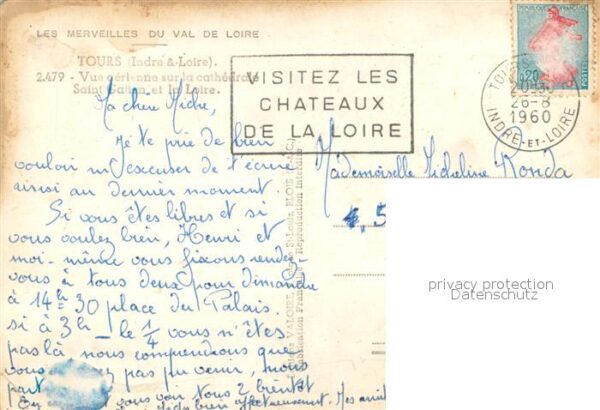 LES MERVEILLES DU VAL DE LOIRE
TOURS (Indre & Loire).
2.479 - Vue aérienne sur la cathédrale
Saint Gatien et la Loire.
VISITEZ LES
CHATEAUX
DE LA LOIRE
REPUBLIQUE FRANÇAISE
0,20
TOURS
26-8
1960
INDRE-ET-LOIRE
Ma chère Miche,
Je te prie de bien
vouloir m'excuser de t'écrire
ainsi au dernier moment.
Si vous êtes libres et si
vous voulez bien, Henri et
moi-même vous fixons rendez-
vous à tous deux pour dimanche
à 14h 30 place du Palais.
si à 3h - le 1/4 vous n'êtes
pas là nous comprendrons que
vous pas pu venir, nous
part
vous voir tous 2 bientôt
bien affectueusement. Mes amitiés
Mademoiselle Micheline Ronda
4, 5
VALOIRE, St-Louis, BLOIS
Fabrication Française - Reproduction Interdite
privacy protection
Datenschutz